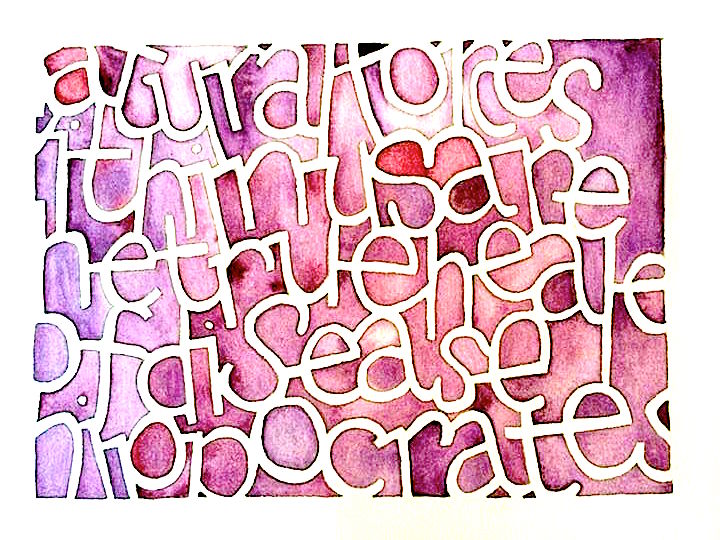 atural forces
ithin us are
he true heale
of disease
hippocrates